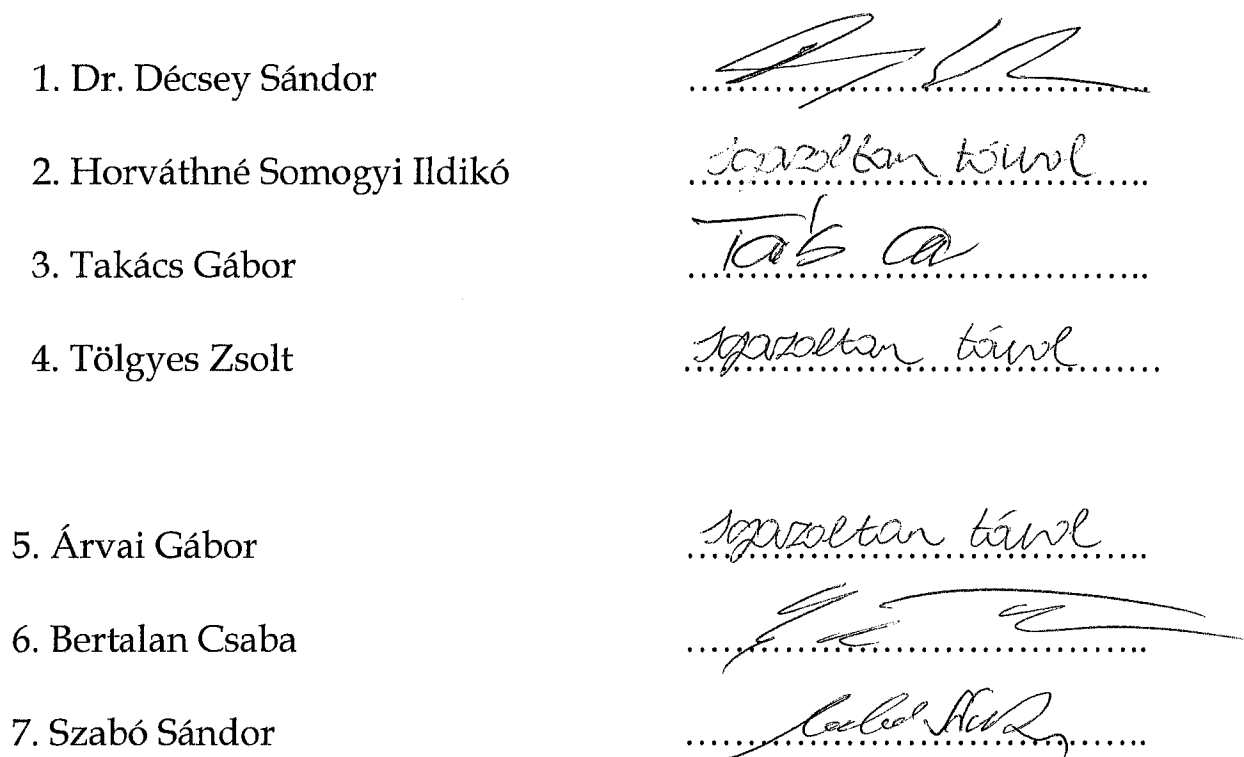 1. Dr. Décsey Sándor
2. Horváthné Somogyi Ildikó igazoltan távol
3. Takács Gábor
4. Tölgyes Zsolt igazoltan távol
5. Árvai Gábor igazoltan távol
6. Bertalan Csaba
7. Szabó Sándor